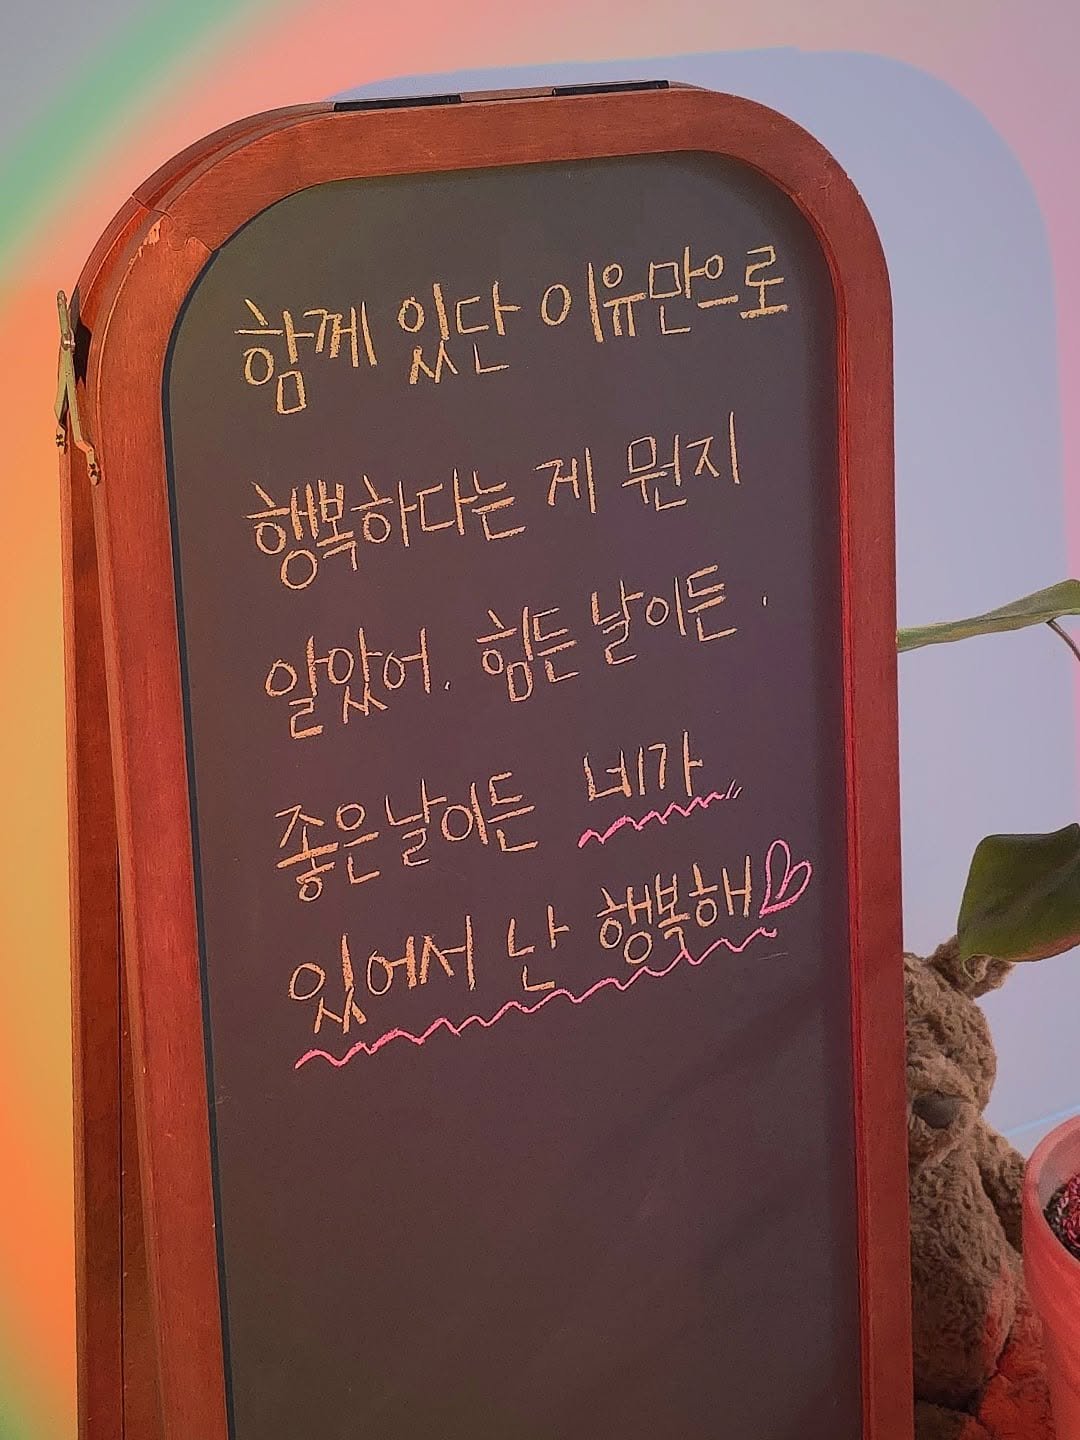 함께 있단 이유만으로
행복하다는 게 뭔지
알았어. 힘든 날이든.
좋은 날이든 네가
있어서 난 행복해♡